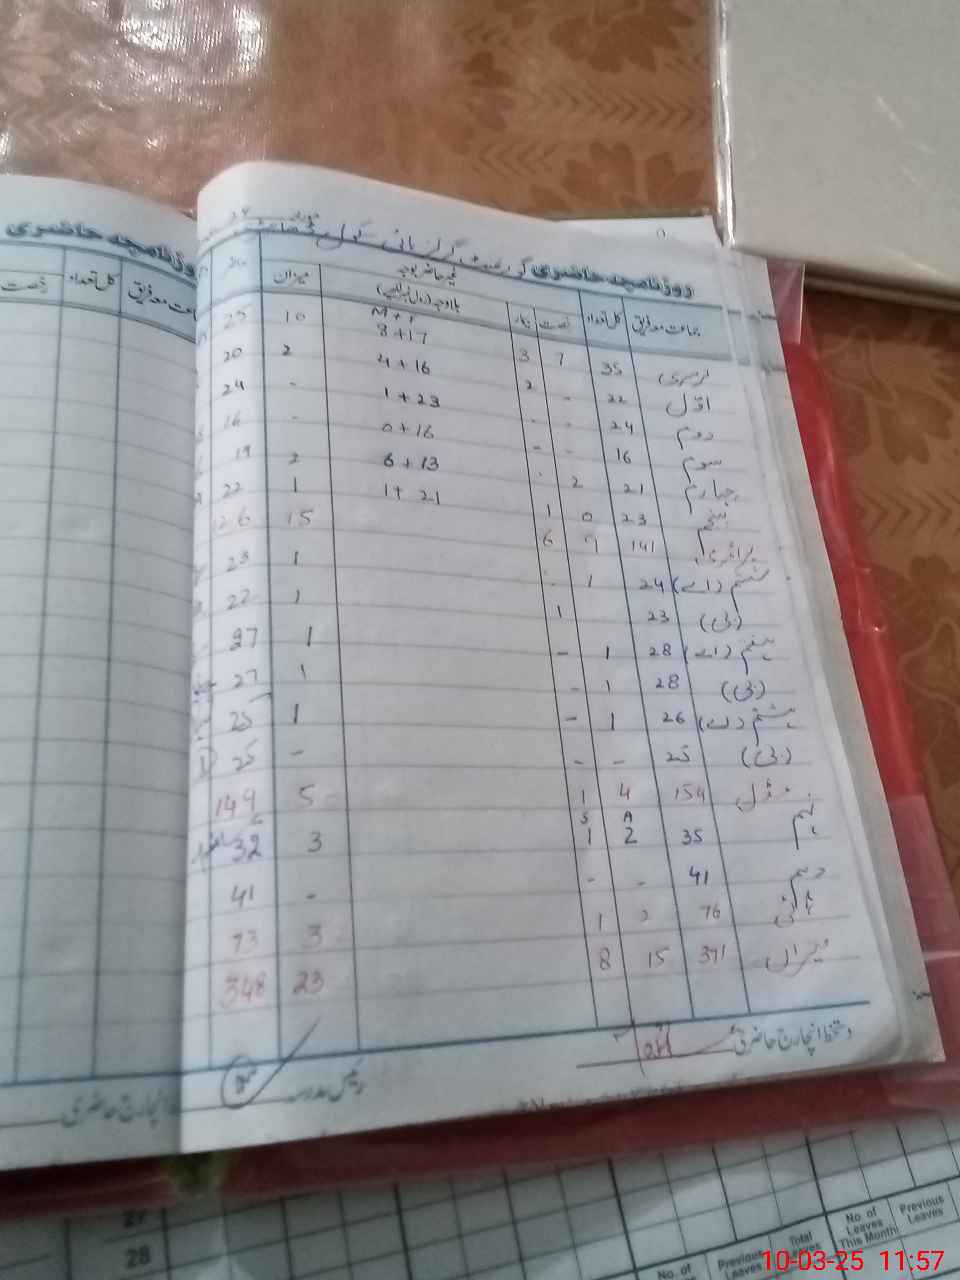 روزنامچہ حاضری گورنمنٹ گرلز ہائی سکول
جماعت معہ فریق کل تعداد رخصت بیمار غیر حاضر بوجہ میزان حاضر
بلاوجہ (رول نمبر لکھیے)
M+F
نرسری 35 7 3 8+17 10 25
اوّل 22 - 2 4+16 2 20
دوم 24 - - 1+23 - 24
سوم 16 - - 0+16 - 16
چہارم 21 2 - 6+13 2 19
پنجم 23 0 1 1+21 1 22
پرائمری 141 9 6 15 126
ششم (اے) 24 1 - 1 23
(بی) 23 1 1 22
ہفتم (اے) 28 1 - 1 27
(بی) 28 1 - 1 27
ہشتم (اے) 26 1 - 1 25
(بی) 25 - - - 25
مڈل 154 4 1 5 149
A S
نہم 35 2 1 3 32
دہم 41 - - - 41
ہائی 76 2 1 3 73
میزان 371 15 8 23 348
دستخط انچارج حاضری
رئیس مدرسہ
روزنامچہ حاضری
جماعت معہ فریق کل تعداد رخصت
انچارج حاضری
27
28
No. of
Previous
Leaves
Total
Leaves
No. of
Leaves
This Month
Previous
Leaves
10-03-25 11:57